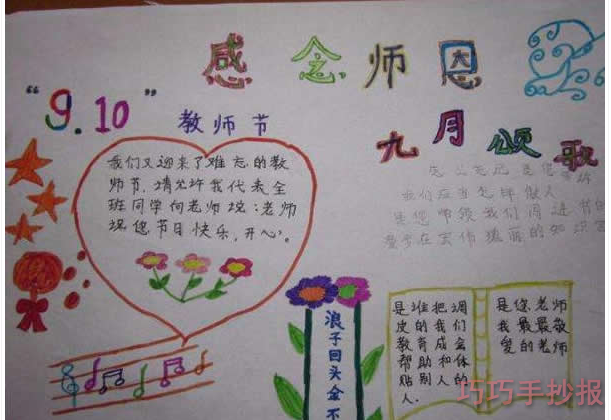 感念师恩
"9.10"
教师节
九月颂歌
我们又迎来了难忘的教
师节，请允许我代表全
班同学向老师说：老师
祝您节日快乐，开心。
我们应当怎样做人
是您带领我们
浪子回头金不
是谁把调
皮的我们
教育成会
帮助和体
贴别人的
人。
是您老师
我最最敬
爱的老师
巧巧手抄报